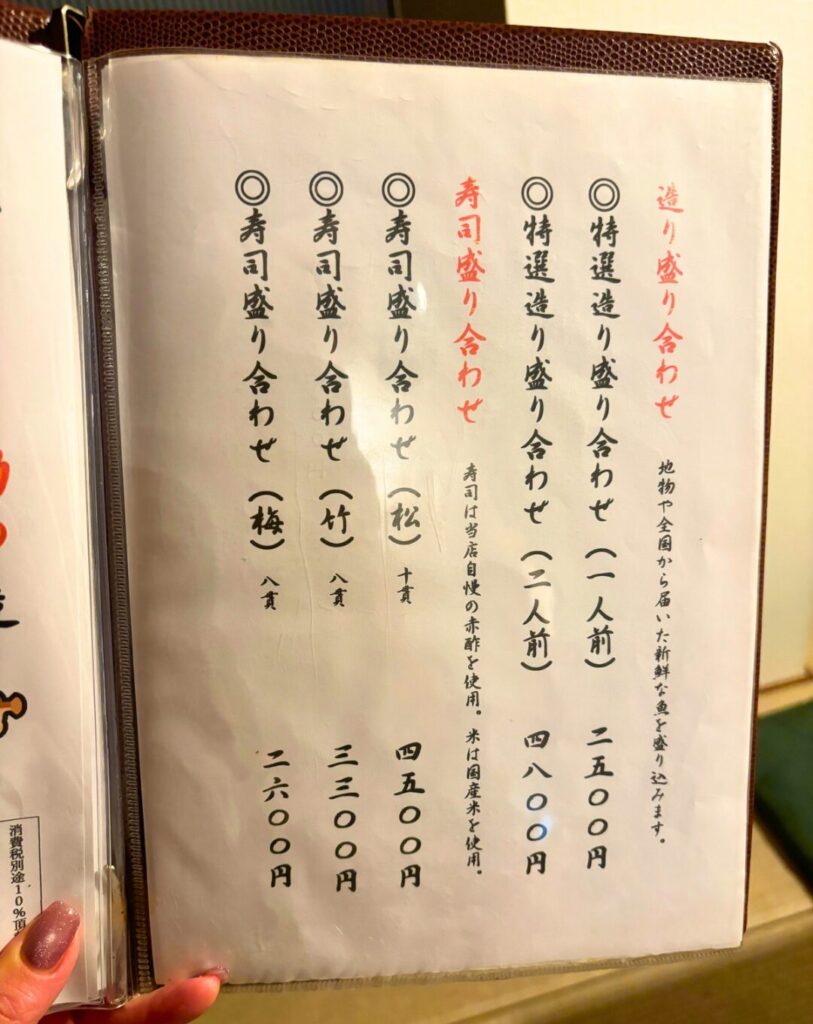 造り盛り合わせ 地物や全国から届いた新鮮な魚を盛り込みます。
◎特選造り盛り合わせ(一人前) 二五〇〇円
◎特選造り盛り合わせ(二人前) 四八〇〇円
寿司盛り合わせ 寿司は当店自慢の赤酢を使用。米は国産米を使用。
◎寿司盛り合わせ(松) 十貫 四五〇〇円
◎寿司盛り合わせ(竹) 八貫 三三〇〇円
◎寿司盛り合わせ(梅) 八貫 二六〇〇円
消費税別途10%頂